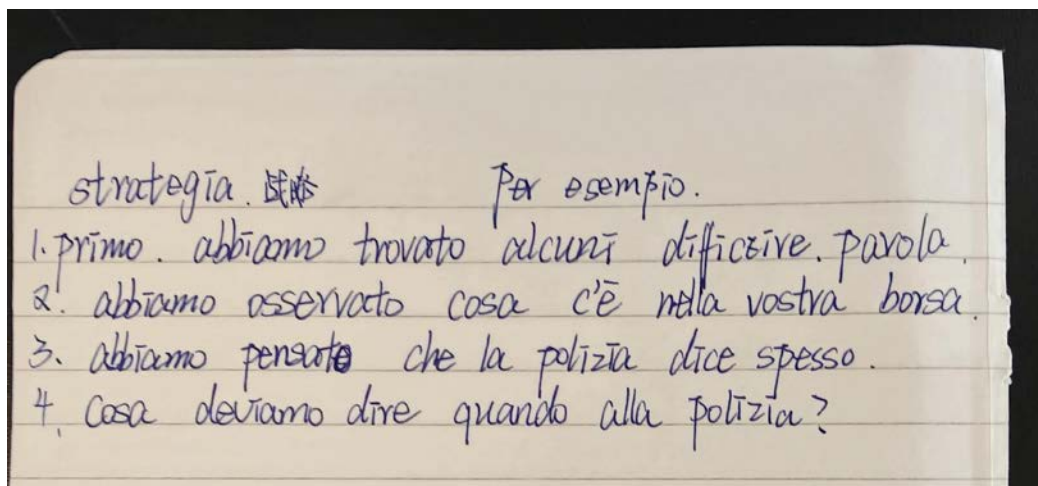 strategia. 战略 Per esempio.
1. primo. abbiamo trovato alcuni difficzive. parola.
2. abbiamo osservato cosa c'è nella vostra borsa.
3. abbiamo pensato che la polizia dice spesso.
4. Cosa deviamo dire quando alla polizia?